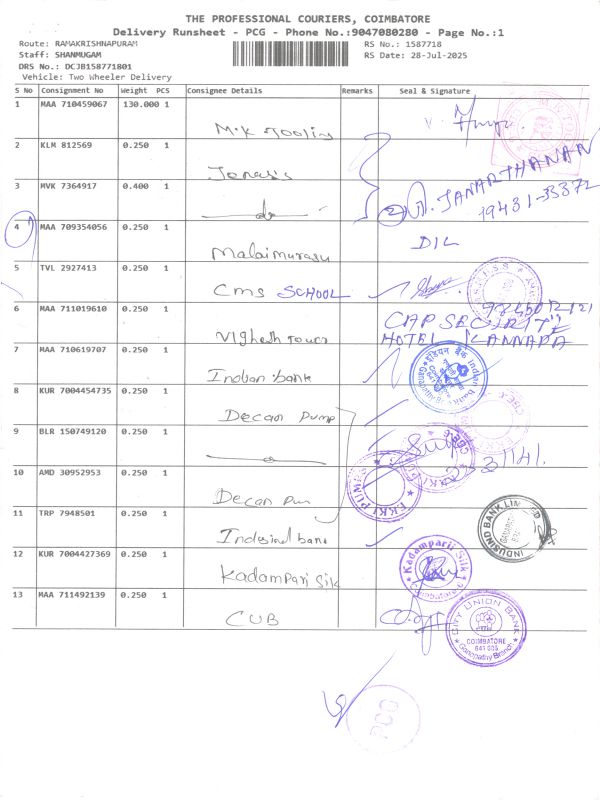 THE PROFESSIONAL COURIERS, COIMBATORE
Delivery Runsheet - PCG - Phone No.:9047080280 - Page No.:1
Route: RAMAKRISHNAPURAM
Staff: SHANMUGAM
DRS No.: DCJB158771801
Vehicle: Two Wheeler Delivery
RS No.: 1587718
RS Date: 28-Jul-2025
S No Consignment No Weight PCS Consignee Details Remarks Seal & Signature
1 MAA 710459067 130.000 1 M.K Tooling
2 KLM 812569 0.250 1
3 MVK 7364917 0.400 1 do
JANARTHANAN
4 MAA 709354056 0.250 1 Malaimurasu DIL
5 TVL 2927413 0.250 1 Cms SCHOOL
6 MAA 711019610 0.250 1 Vighesh Tours
HOTEL KANNAPA
7 MAA 710619707 0.250 1 Indian bank
इंडियन बैंक Indian Bank
8 KUR 7004454735 0.250 1 Decan Pump
9 BLR 150749120 0.250 1
10 AMD 30952953 0.250 1 Decan Pum
EKKI PUMPS
11 TRP 7948501 0.250 1 Indusind bank
INDUSIND BANK LIMITED
12 KUR 7004427369 0.250 1 Kadampari Silk
Kadamparii Silk
Coimbatore
13 MAA 711492139 0.250 1 CUB
CITY UNION BANK
COIMBATORE
641 006
Ganapathy Branch
PCG